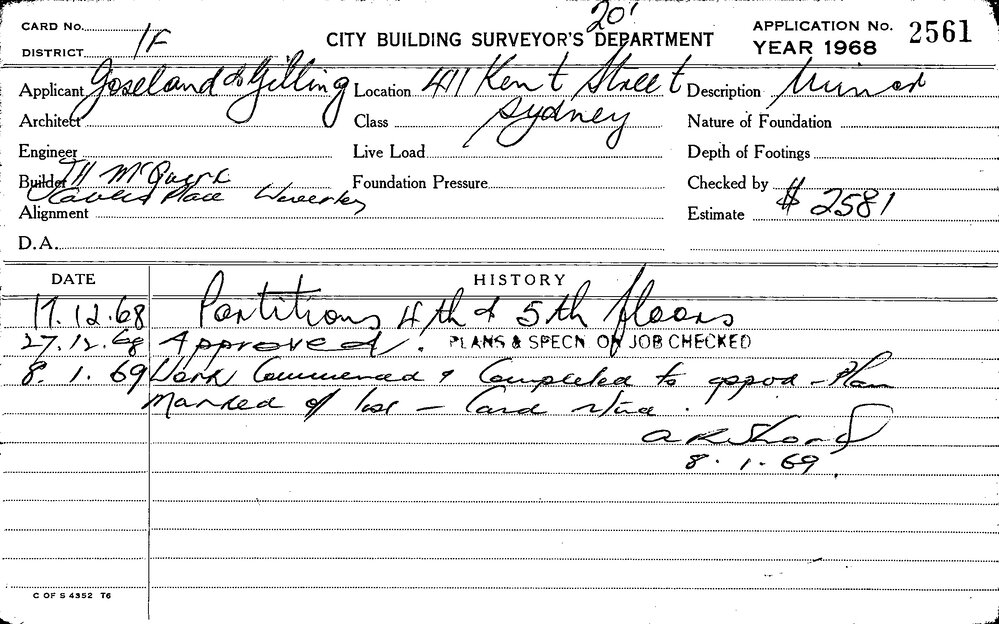 20'
CARD No. APPLICATION No. 2561
DISTRICT 1F CITY BUILDING SURVEYOR'S DEPARTMENT YEAR 1968
Applicant Goseland & Gilling Location 411 Kent Street Description Minor
Architect Class Sydney Nature of Foundation
Engineer Live Load Depth of Footings
Builder McGuirk Foundation Pressure Checked by
Place Waverley
Alignment Estimate $ 2581
D.A.
DATE HISTORY
17.12.68 Partitions 4th & 5th floors
27.12.68 Approved. PLANS & SPECN. ON JOB CHECKED
8.1.69 Work Commenced & Completed to appvd - Plan
Marked off - Card
8.1.69.
C OF S 4352 T6